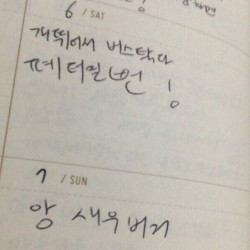 6 / SAT
개뛰어서 버스탔다
페더럴번!
7 / SUN
앙 새우버거